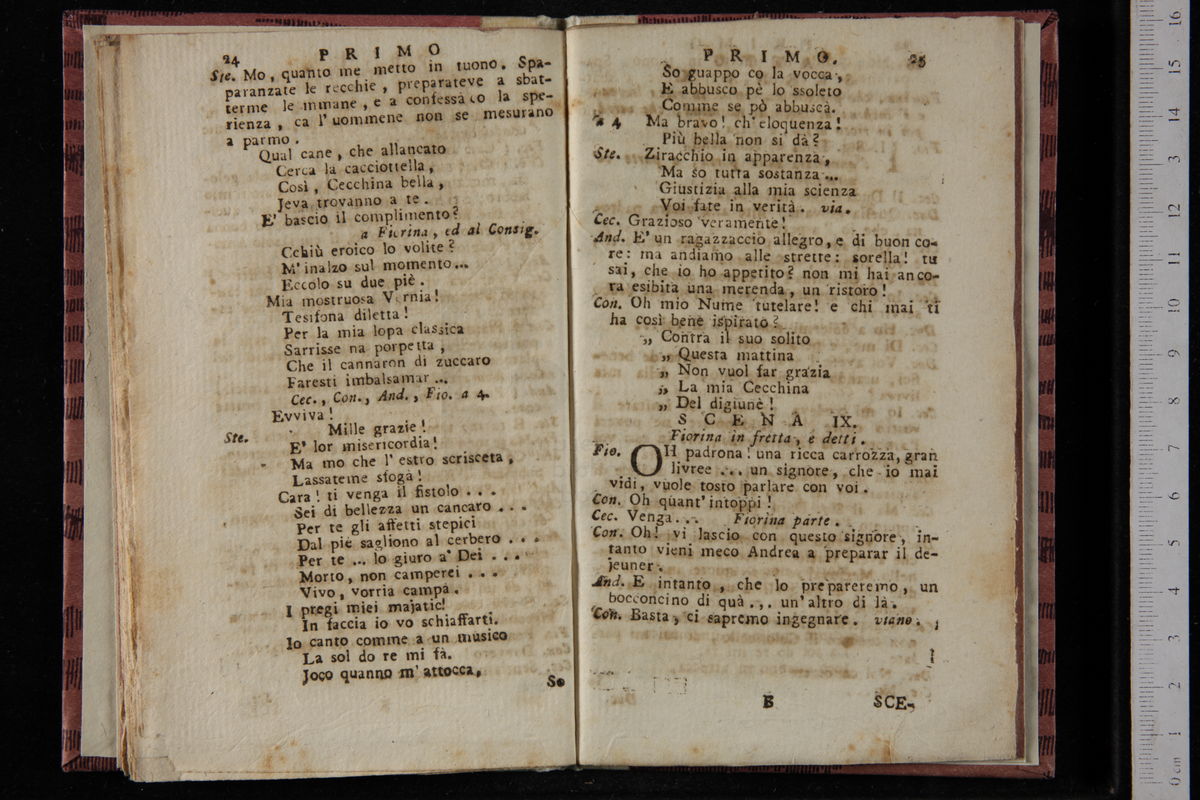 24 PRIMO
Ste. Mo, quanto me metto in tuono. Spa-
paranzate le recchie, preparateve a sbat-
terme le mmane, e a confessà co la spe-
rienza, ca l'uommene non se mesurano
a parmo.
Qual cane, che allancato
Cerca la cacciottella,
Così, Cecchina bella,
Jeva trovanno a te.
E' bascio il complimento?
a Fiorina, ed al Consig.
Cchiù eroico lo volite?
M'inalzo sul momento...
Eccolo su due piè.
Mia mostruosa Vernia!
Tesifona diletta!
Per la mia lopa classica
Sarrisse na porpetta,
Che il cannaron di zuccaro
Faresti imbalsamar...
Cec., Con., And., Fio. a 4.
Evviva!
Mille grazie!
Ste. E' lor misericordia!
Ma mo che l'estro scrisceta,
Lassateme sfogà!
Cara! ti venga il fistolo...
Sei di bellezza un cancaro...
Per te gli affetti stepici
Dal piè sagliono al cerbero...
Per te... lo giuro a' Dei...
Morto, non camperei...
Vivo, vorria campà.
I pregi miei majatici
In faccia io vo schiaffarti.
Io canto comme a un musico
La sol do re mi fà.
Joco quanno m'attocca,
So
PRIMO. 25
So guappo co la vocca,
E abbusco pè lo ssoleto
Comme se pò abbuscà.
a 4 Ma bravo! ch'eloquenza!
Più bella non si dà?
Ste. Ziracchio in apparenza,
Ma so tutta sostanza...
Giustizia alla mia scienza
Voi fate in verità. via.
Cec. Grazioso veramente!
And. E' un ragazzaccio allegro, e di buon co-
re: ma andiamo alle strette: sorella! tu
sai, che io ho appetito? non mi hai anco-
ra esibita una merenda, un ristoro!
Con. Oh mio Nume tutelare! e chi mai ti
ha così bene ispirato?
„ Contra il suo solito
„ Questa mattina
„ Non vuol far grazia
„ La mia Cecchina
„ Del digiunè!
SCENA IX.
Fiorina in fretta, e detti.
Fio. OH padrona! una ricca carrozza, gran
livree... un signore, che io mai
vidi, vuole tosto parlare con voi.
Con. Oh quant'intoppi!
Cec. Venga... Fiorina parte.
Con. Oh! vi lascio con questo signore, in-
tanto vieni meco Andrea a preparar il de-
jeuner.
And. E intanto, che lo prepareremo, un
bocconcino di quà... un'altro di là.
Con. Basta, ci sapremo ingegnare. viano.
B SCE-